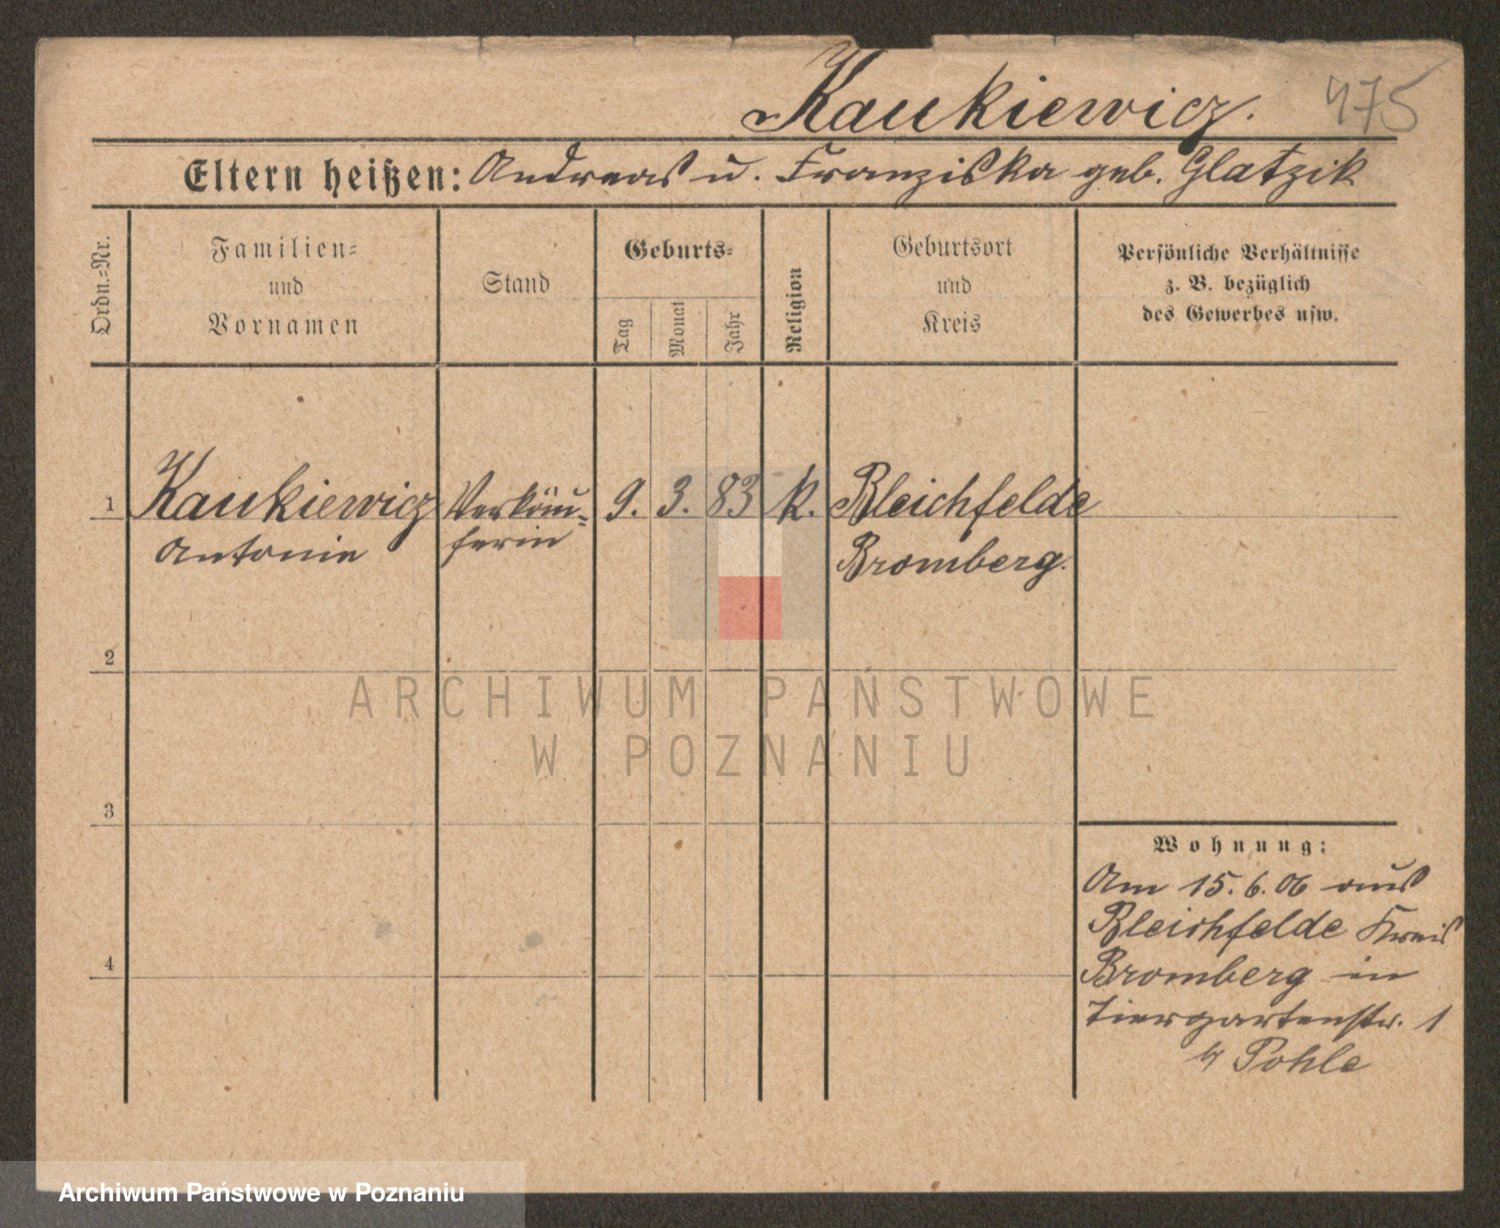 Kaukiewicz.
475
Eltern heißen: Andreas u. Franziska geb. Glatzik
Ordn.-Nr.
Familien- und Vornamen
Stand
Geburts-
Tag
Monat
Jahr
Religion
Geburtsort und Kreis
Persönliche Verhältnisse
z. B. bezüglich
des Gewerbes usw.
1 Kaukiewicz Verkäu- 9. 3. 83 k. Bleichfelde
Antonie ferin Bromberg.
2
ARCHIWUM PAŃSTWOWE
W POZNANIU
3
Wohnung:
Am 15.6.06 aus
Bleichfelde Kreis
4
Bromberg in
Tiergartenstr. 1
b/ Pohle
Archiwum Państwowe w Poznaniu